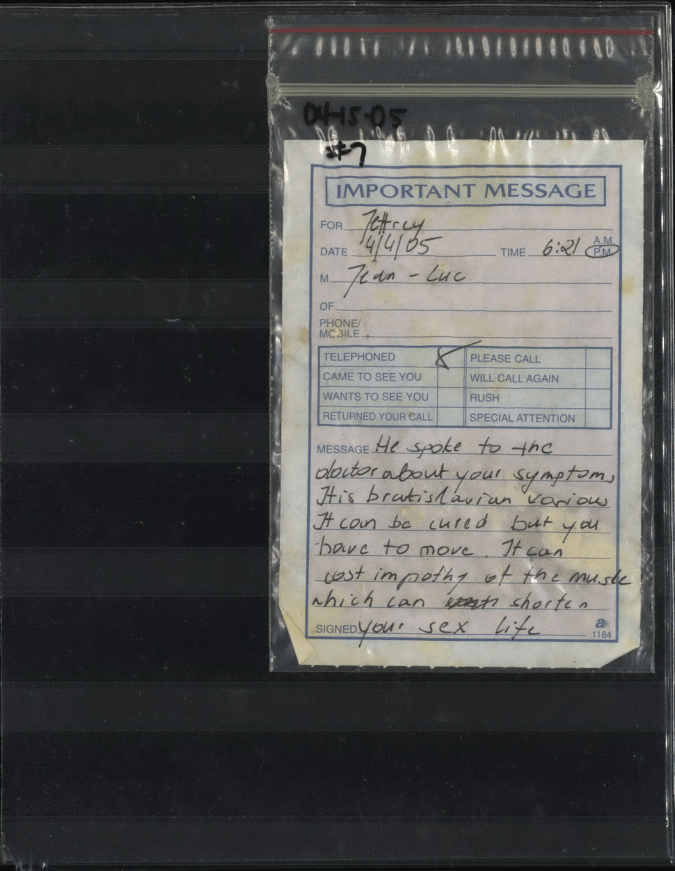 04-15-05
#7
IMPORTANT MESSAGE
FOR Jeffrey
DATE 4/4/05 TIME 6:21 A.M. P.M.
M Jean - Luc
OF
PHONE/
MOBILE
TELEPHONED PLEASE CALL
CAME TO SEE YOU WILL CALL AGAIN
WANTS TO SEE YOU RUSH
RETURNED YOUR CALL SPECIAL ATTENTION
MESSAGE He spoke to the
doctor about your symptoms
It is bratislavian various
It can be cured but you
have to move. It can
cost impathy of the muscle
which can shorten
SIGNED your sex life
a
1184